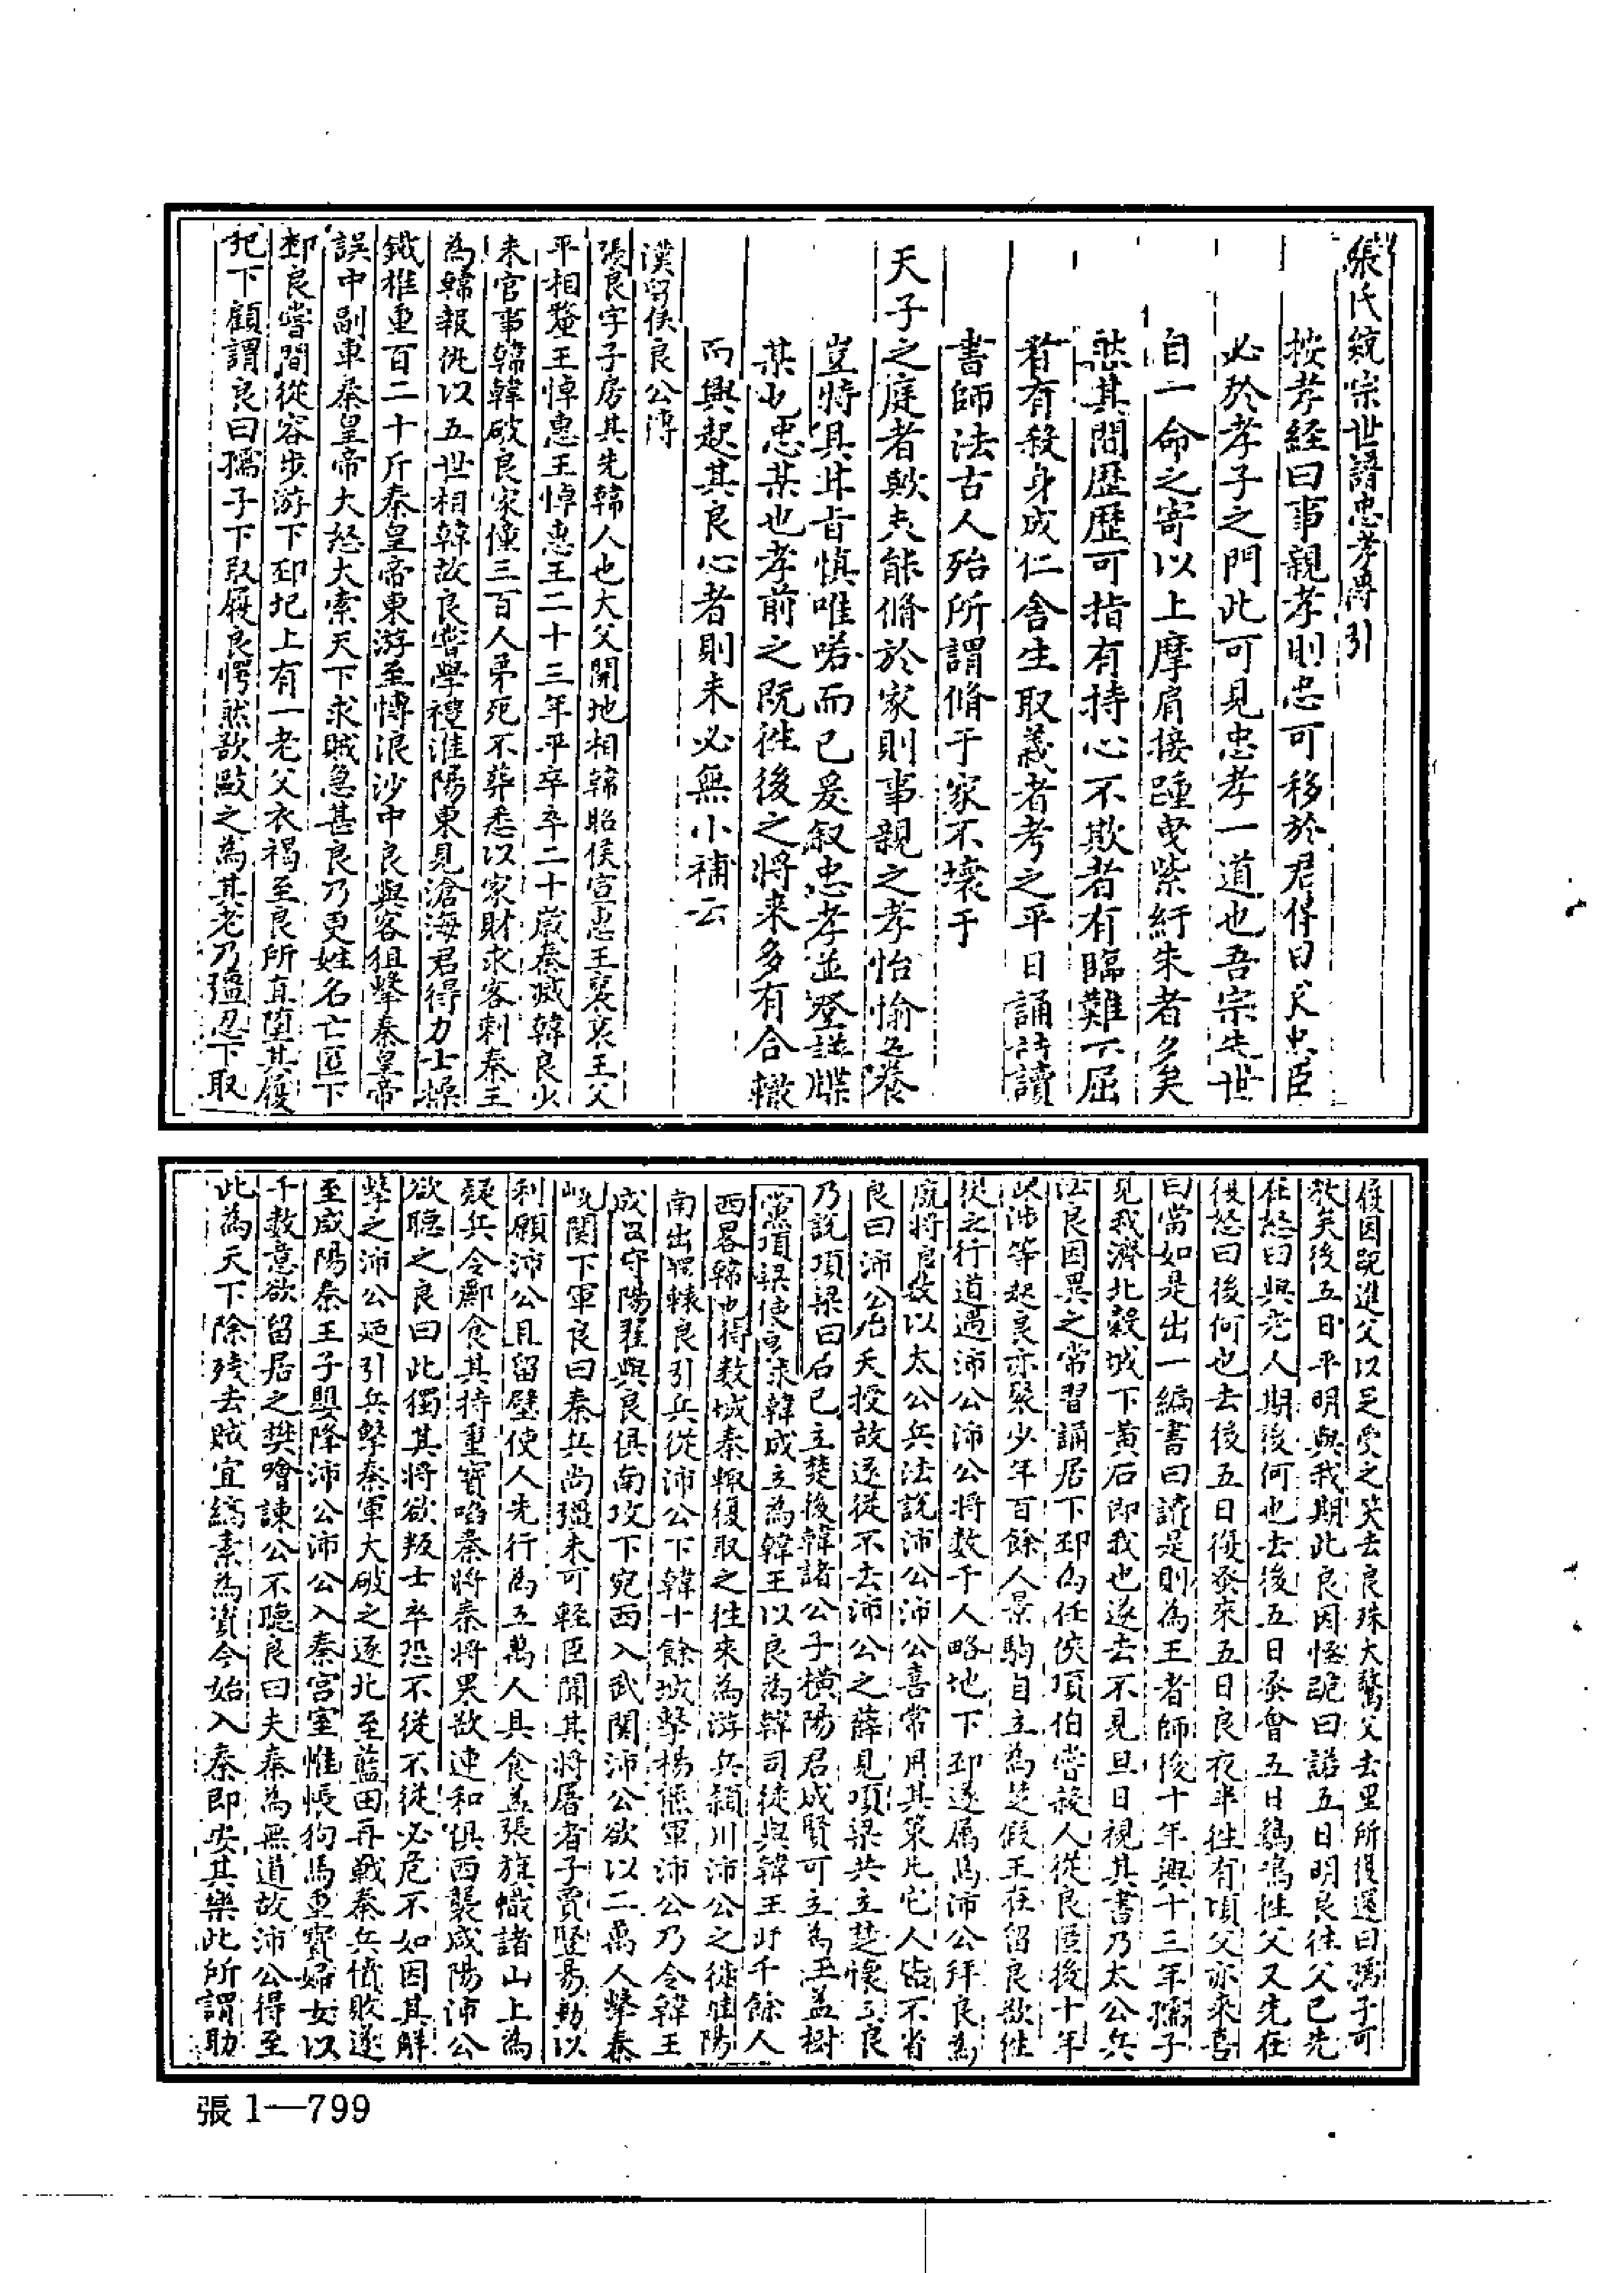 張氏統宗世譜忠孝傳引
按孝經曰事親孝則忠可移於君傳曰求忠臣
必於孝子之門此可見忠孝一道也吾宗先世
自一命之寄以上摩肩接踵曳紫紆朱者多矣
然其間歷歷可指有持心不欺者有臨難不屈
者有殺身成仁舍生取義者考之平日誦詩讀
書師法古人殆所謂脩于家不壞于
天子之庭者歟夫能脩於家則事親之孝怡愉色養
豈特具甘旨慎唯喏而已爰叙忠孝並登譜牒
某也忠某也孝前之既徃後之將来多有合轍
而興起其良心者則未必無小補云
漢留侯良公傳
張良字子房其先韓人也大父開地相韓昭侯宣惠王襄哀王父
平相釐王悼惠王悼惠王二十三年平卒卒二十歲秦滅韓良少
未官事韓韓破良家僮三百人弟死不葬悉以家財求客刺秦王
為韓報仇以五世相韓故良嘗學禮淮陽東見滄海君得力士操
鐵椎重百二十斤秦皇帝東游至博浪沙中良與客狙擊秦皇帝
誤中副車秦皇帝大怒大索天下求賊急甚良乃更姓名亡匿下
邳良嘗間從容步游下邳圯上有一老父衣褐至良所直墮其履
圯下顧謂良曰孺子下取履良愕然欲毆之為其老乃彊忍下取
履因跪進父以足受之笑去良殊大驚父去里所復還曰孺子可
教矣後五日平明與我期此良因怪跪曰諾五日明良徃父已先
在怒曰與老人期後何也去後五日蚤會五日鷄鳴徃父又先在
復怒曰後何也去後五日復蚤來五日良夜半徃有頃父亦來喜
曰當如是出一編書曰讀是則為王者師後十年興十三年孺子
見我濟北穀城下黃石即我也遂去不見旦日視其書乃太公兵
法良因異之常習誦居下邳為任俠項伯嘗殺人從良匿後十年
陳涉等起良亦聚少年百餘人景駒自立為楚假王在留良欲徃
從之行道遇沛公沛公將數千人略地下邳遂屬焉沛公拜良為
廐將良數以太公兵法說沛公沛公喜常用其策凡它人皆不省
良曰沛公殆天授故遂從不去沛公之薛見項梁共立楚懷王良
乃說項梁曰君已立楚後韓諸公子橫陽君成賢可立為王益樹
黨項梁使良求韓成立為韓王以良為韓司徒與韓王將千餘人
西畧韓地得数城秦輒復取之徃來為游兵潁川沛公之從雒陽
南出轘轅良引兵從沛公下韓十餘城擊楊熊軍沛公乃令韓王
成留守陽翟與良俱南攻下宛西入武關沛公欲以二萬人擊秦
嶢關下軍良曰秦兵尚彊未可輕臣聞其將屠者子賈豎易動以
利願沛公且留壁使人先行為五萬人具食益張旗幟諸山上為
疑兵令酈食其持重寶啗秦將秦將果欲連和俱西襲咸陽沛公
欲聽之良曰此獨其將欲叛士卒恐不從不從必危不如因其解
擊之沛公廼引兵擊秦軍大破之逐北至藍田再戰秦兵憤敗遂
至咸陽秦王子嬰降沛公沛公入秦宮室惟帳狗馬重寶婦女以
千數意欲留居之樊噲諫公不聽良曰夫秦為無道故沛公得至
此為天下除殘去賊宜縞素為資今始入秦即安其樂此所謂助
張1—799